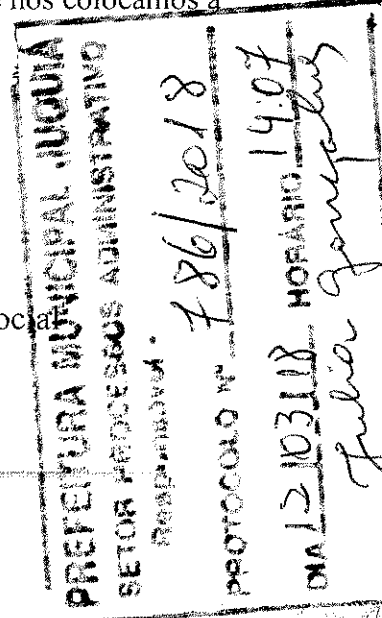 e nos colocamos à
ocial
PREFEITURA MUNICIPAL JUQUIÁ
SETOR PROCESSOS ADMINISTRATIVO
Responsável.
PROTOCOLO Nº 786/2018
DIA 12/03/18 HORÁRIO 14:07
Julia Gonçalves